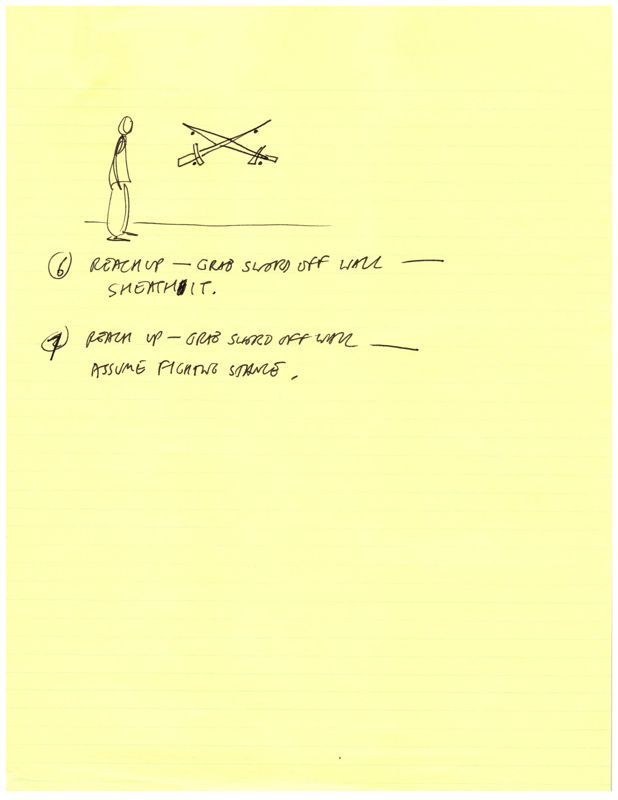 6 REACH UP — GRAB SWORD OFF WALL —
SHEATH IT.
7 REACH UP — GRAB SWORD OFF WALL —
ASSUME FIGHTING STANCE.